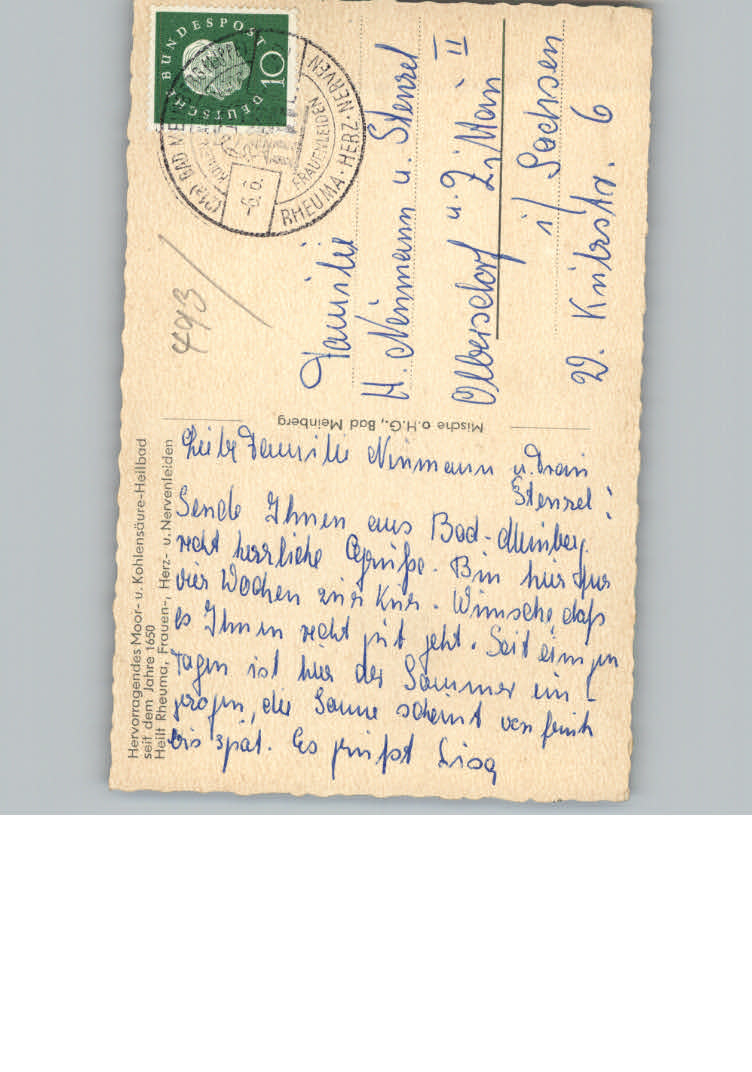 Hervorragendes Moor- u. Kohlensäure-Heilbad
seit dem Jahre 1650
Heilt Rheuma, Frauen-, Herz- u. Nervenleiden
Liebe Familie Neumann u. Frau
Stenzel!
Sende Ihnen aus Bad-Meinberg
recht herzliche Grüße. Bin hier für
vier Wochen zur Kur. Wünsche, daß
es Ihnen recht gut geht. Seit einigen
Tagen ist hier der Sommer ein-
gezogen, die Sonne scheint von früh
bis spät. Es grüßt Lisa
Mische o.H.G., Bad Meinberg
493
DEUTSCHE BUNDESPOST
10
(21a) BAD ME
-6.6.
RHEUMA·HERZ·NERVEN
FRAUENLEIDEN
Familie
H. Neumann u. Stenzel
Olbersdorf ü. Zittau II
i/ Sachsen
22. Str. 6